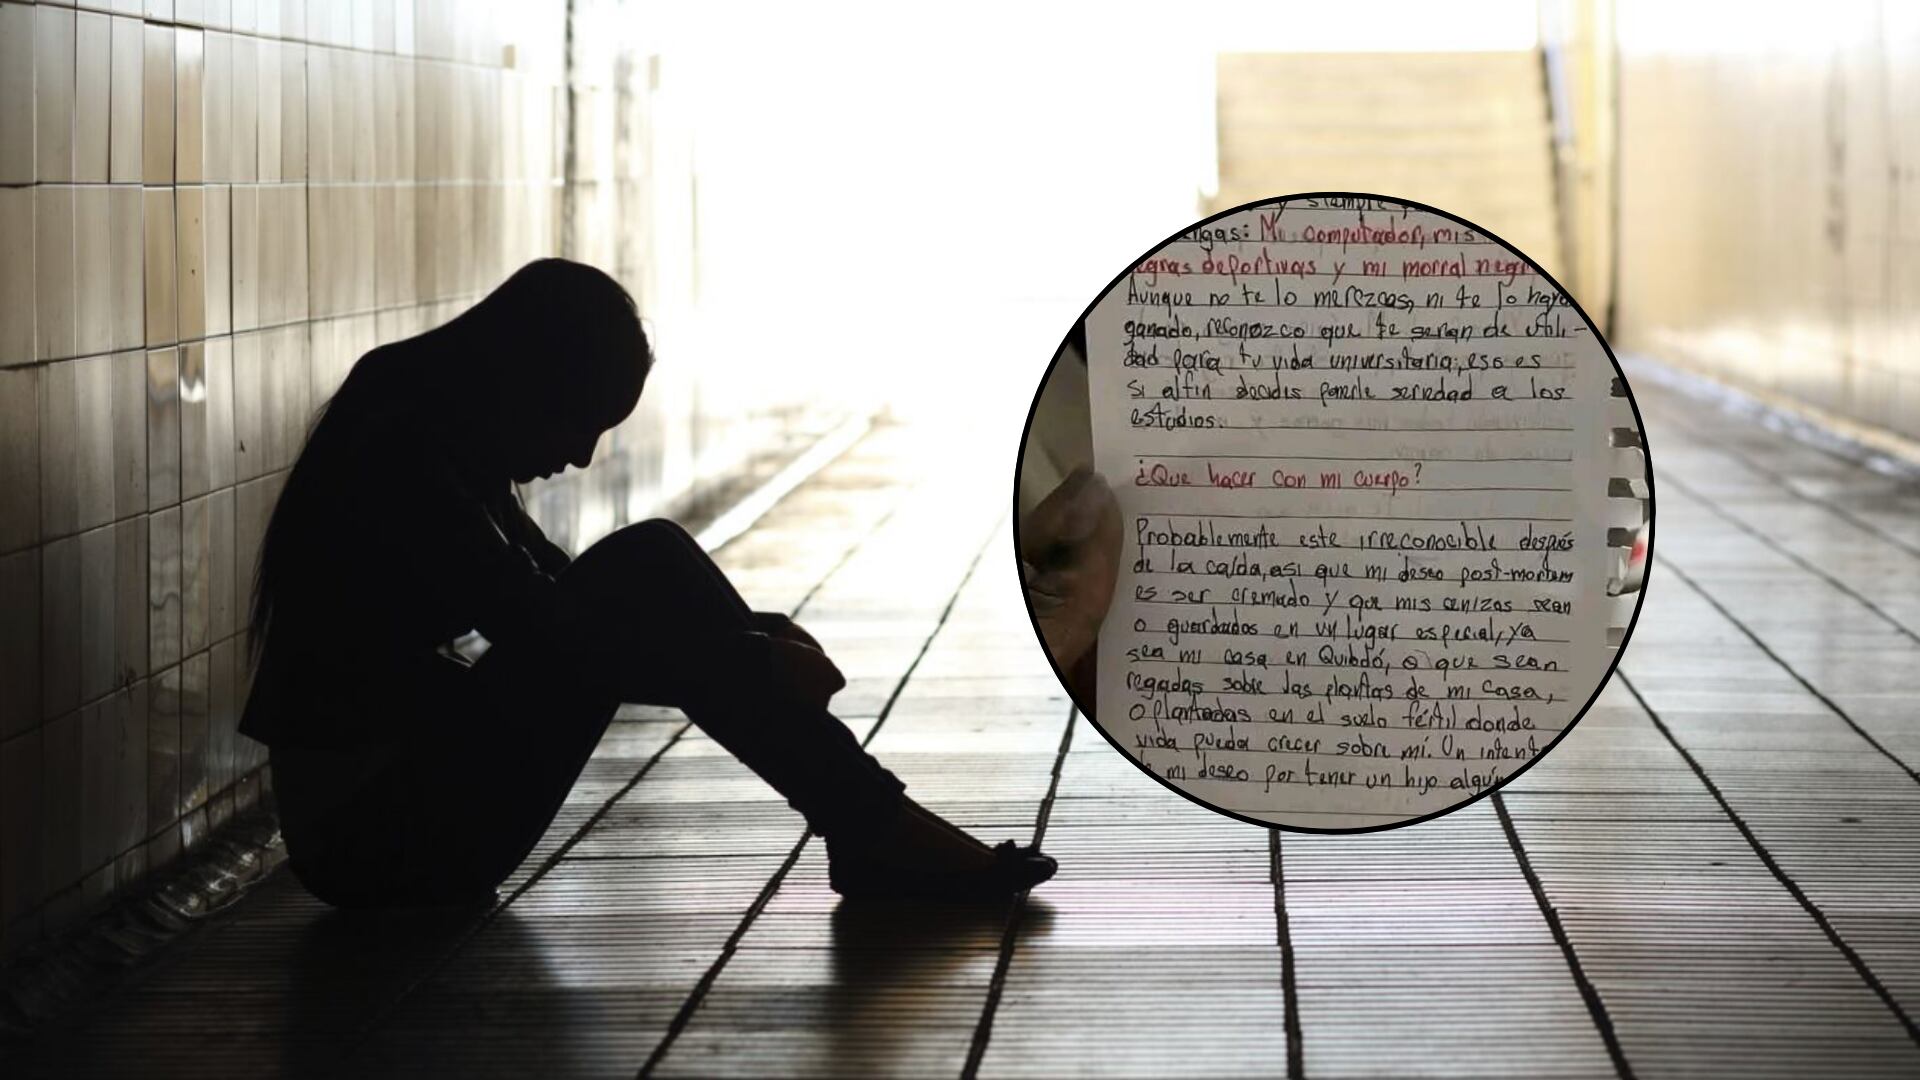 y siempre
Mi computador, mis
deportivas y mi morral
Aunque no te lo merezcas, ni te lo haya
ganado, reconozco que te seran de utili-
dad para tu vida universitaria, eso es
si alfin decidis ponerle seriedad a los
estudios.
¿Que hacer con mi cuerpo?
Probablemente este irreconocible después
de la caída, asi que mi deseo post-mortem
es ser cremado y que mis cenizas sean
o guardadas en un lugar especial, ya
sea mi casa en Quibdó, o que sean
regadas sobre las plantas de mi casa,
o plantadas en el suelo fértil donde
vida pueda crecer sobre mí. Un
mi deseo por tener un hijo